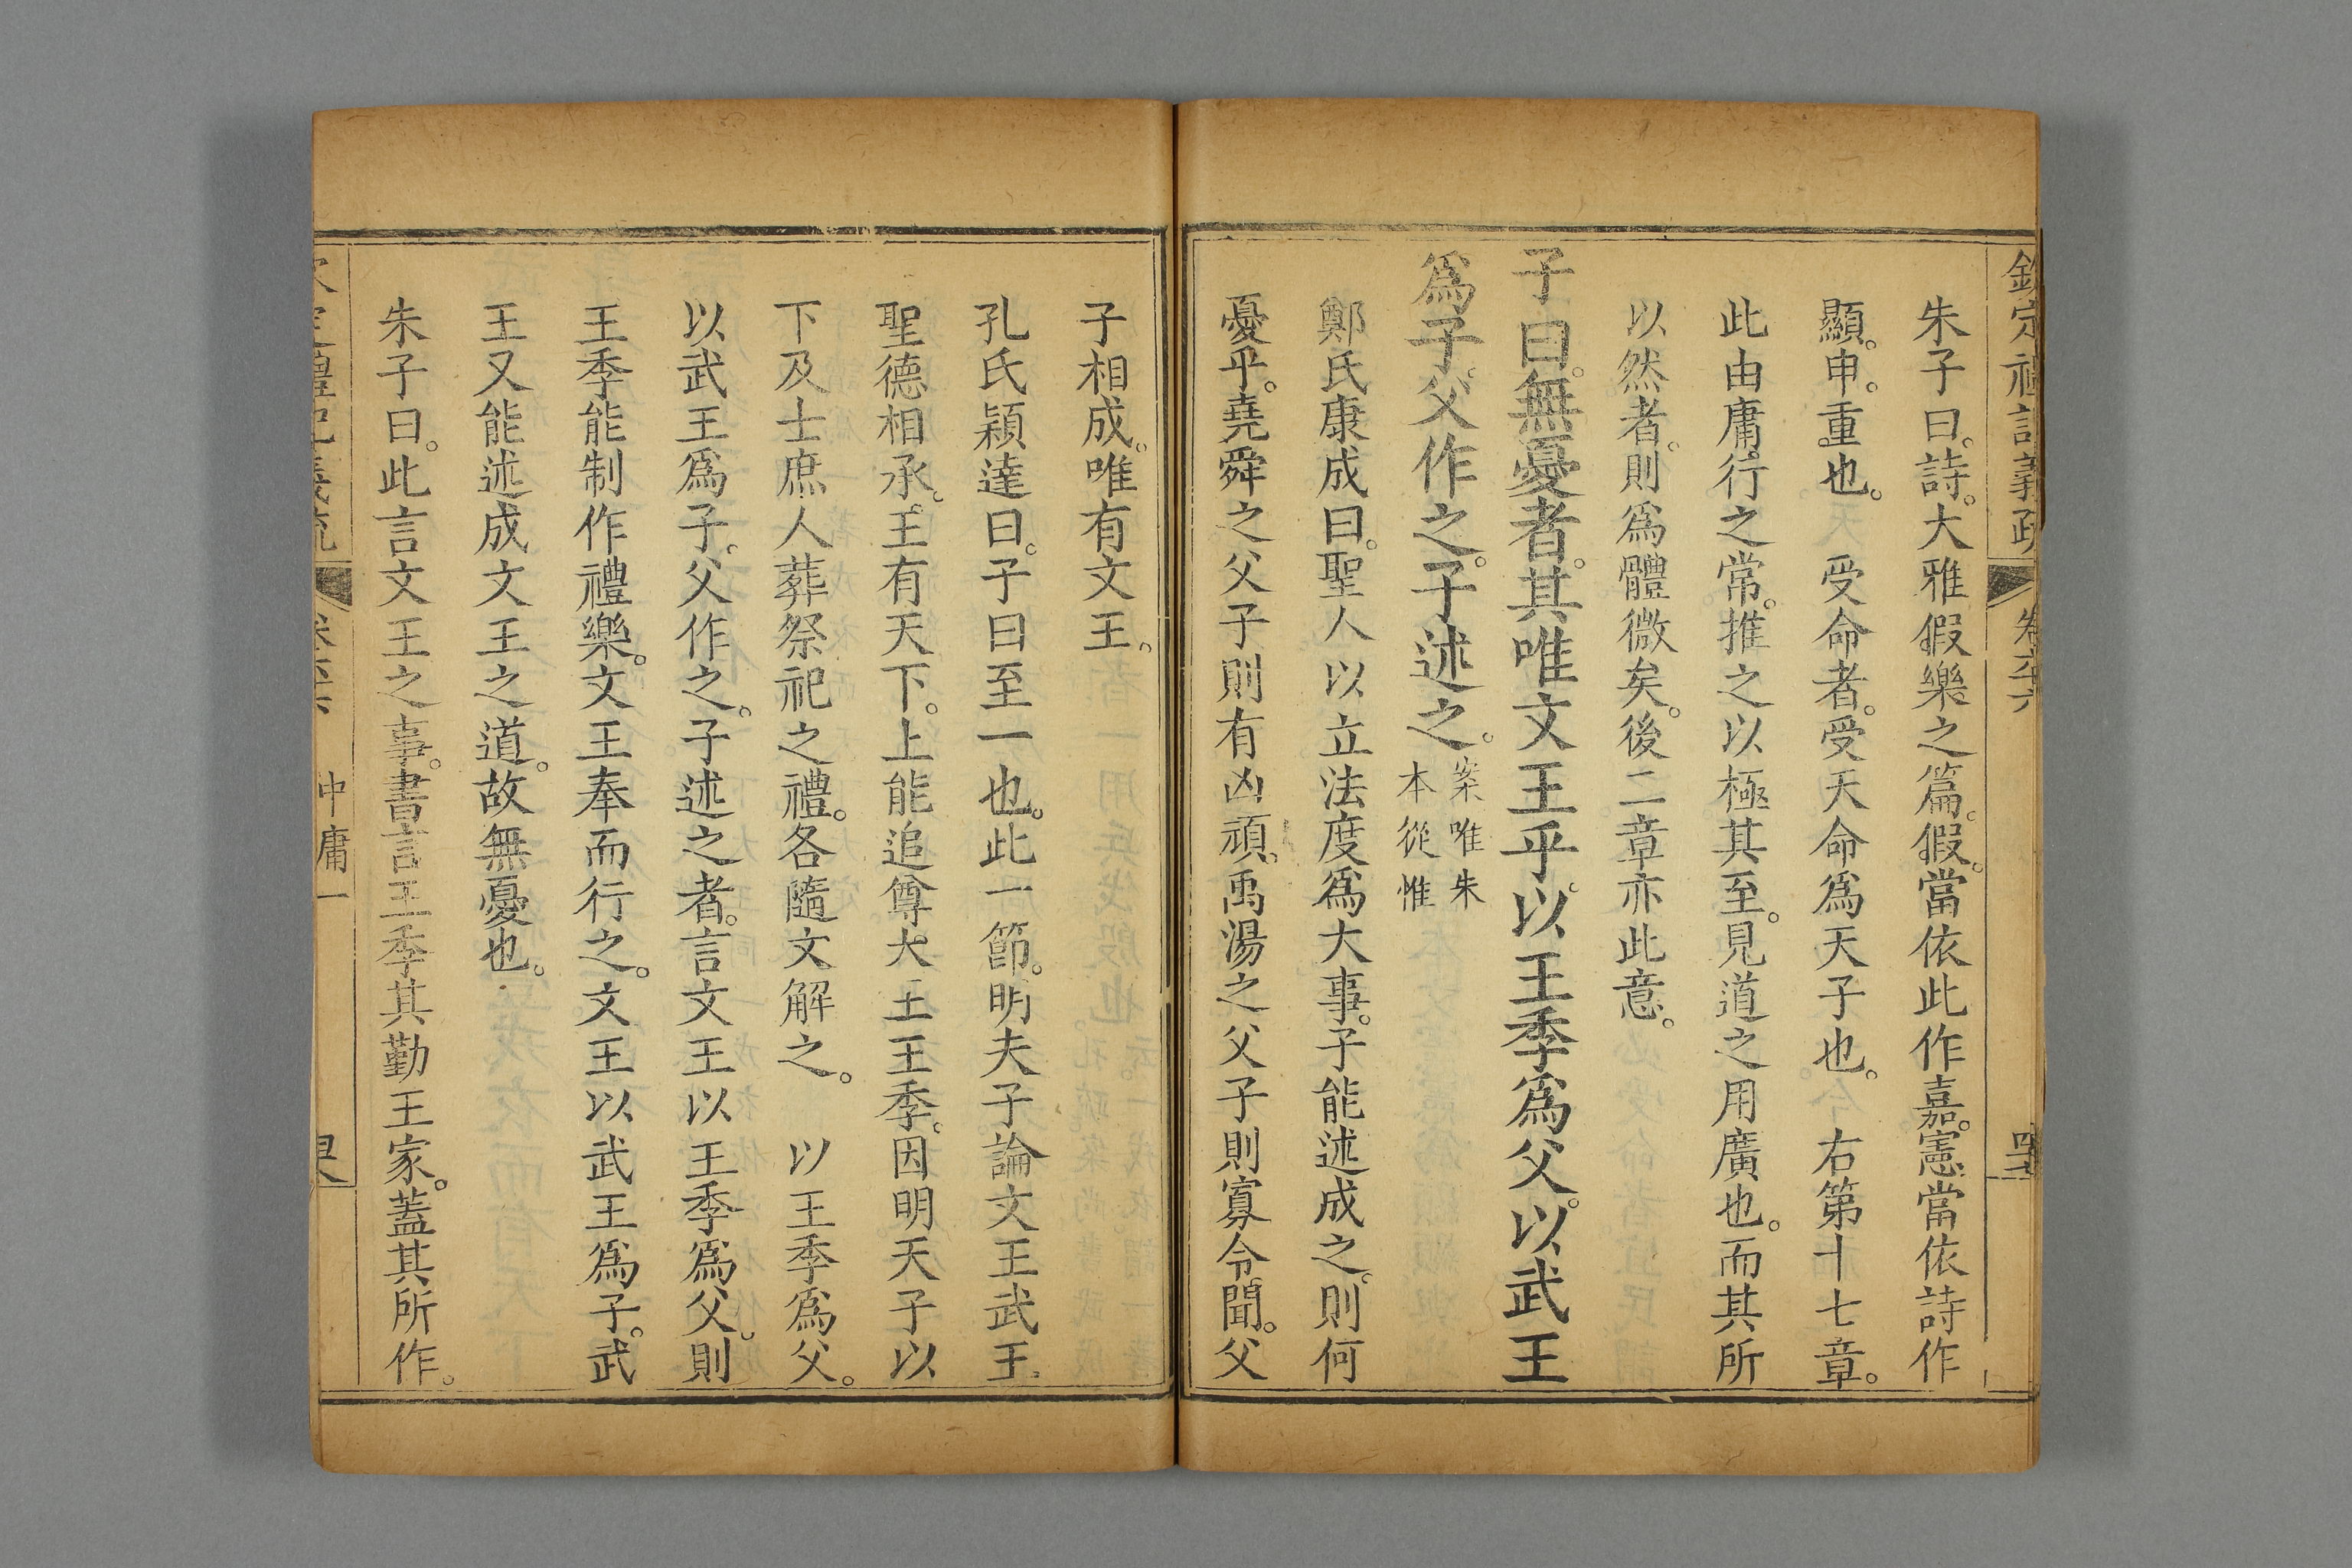 欽定禮記義疏 卷 六
朱子曰。詩。大雅假樂之篇。假。當依此作嘉。憲。當依詩作
顯。申。重也。 受命者。受天命爲天子也。 右第十七章。
此由庸行之常。推之以極其至。見道之用廣也。而其所
以然者。則爲體微矣。後二章亦此意。
子曰。無憂者。其唯文王乎。以王季爲父。以武王
爲子。父作之。子述之。
案唯朱
本從惟
鄭氏康成曰。聖人以立法度爲大事。子能述成之。則何
憂乎。堯舜之父子則有凶頑。禹湯之父子則寡令聞。父
子相成。唯有文王。
孔氏穎達曰。子曰至一也。此一節。明夫子論文王武王。
聖德相承。王有天下。上能追尊大王王季。因明天子以
下及士庶人葬祭祀之禮。各隨文解之。 以王季爲父。
以武王爲子。父作之。子述之者。言文王以王季爲父。則
王季能制作禮樂。文王奉而行之。文王以武王爲子。武
王又能述成文王之道。故無憂也。
朱子曰。此言文王之事。書言王季其勤王家。蓋其所作。
定禮記義疏 中庸一